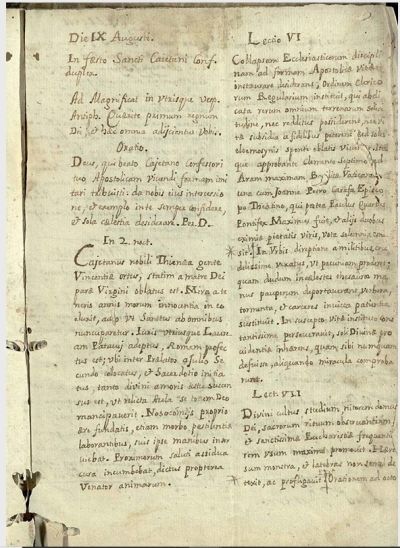 Die IX Augusti.
In festo Sancti Caietani Conf.
duplex.
Ad Magnificat in utrisque vesp.
Antiph. Quærite primum regnum
Dei, et hæc omnia adjicientur vobis.
Oratio.
Deus, qui beato Cajetano Confessori
tuo Apostolicam vivendi formam imi
tari tribuisti: da nobis eius intercessio
ne, et exemplo in te semper confidere,
et sola cælestia desiderare. Per D.
In 2. noct.
Cajetanus nobili Thienæa gente
Vincentiæ ortus, statim a matre Dei
paræ Virgini oblatus est. Mira a te
neris annis morum innocentia in eo
eluxit, adeo ut Sanctus ab omnibus
nuncuparetur. Juris utriusque Laure
am Patavij adeptus, Romam profec
tus est; ubi inter Prælatos a Julio Se
cundo collocatus, et Sacerdotio initia
tus, tanto divini amoris æstu succen
sus est, ut relicta Aula se totum Deo
mancipaverit. Nosocomijs proprio
ære fundatis, etiam morbo pestilentia
laborantibus, suis ipse manibus inser
viebat. Proximorum saluti assidua
cura incumbebat, dictus propterea
Venator animarum.
Lectio VI
Collapsam Ecclesiasticorum discipli
nam ad formam Apostolicæ vitæ
instaurare desiderans, Ordinem Clerico
rum Regularium instituit, qui abdi
cata rerum omnium terrenarum solici
tudine, nec redditus possiderent, nec vi
tæ subsidia a fidelibus peterent, sed solis
eleemosynis sponte oblatis viverent. Ita
que approbante Clemente Septimo, ad
Aram maximam Basilicæ Vaticanæ
una cum Joanne Petro Carafa Episco
po Theatino, qui postea Paulus Quartus
Pontifex Maximus fuit, et alijs duobus
eximiæ pietatis viris, vota solemnia emi
sit. In Urbis direptione a militibus cru
delissime vexatus, ut pecuniam proderet,
quam dudum in cælestes thesauros ma
nus pauperum deportaverant, verbera,
tormenta, et carceres invicta patientia
sustinuit. In suscepto vitæ instituto cons
tantissime perseveravit, soli Divinæ pro
videntiæ inhærens, quam sibi numquam
defuisse, aliquando miracula comproba
runt.
Lect. VII
Divini cultus studium, nitorem domus
Dei, sacrorum rituum observantiam,
et sanctissimæ Eucharistiæ frequenti
orem usum maxime promovit. Hære
sum monstra, et latebras non semel de
texit, ac profligavit. Orationem ad octo